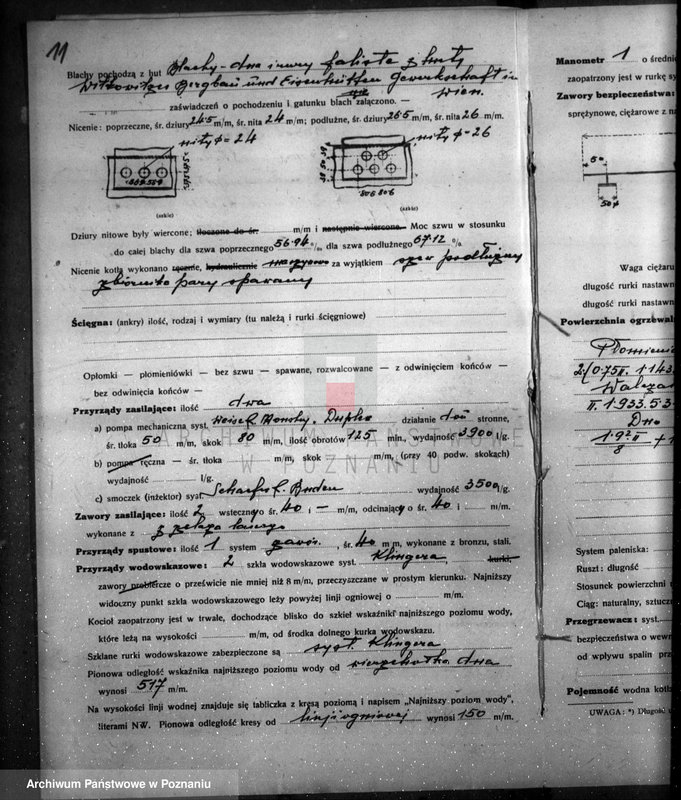 11
Blachy pochodzą z hut Blachy - dna i rury faliste z huty
Witkovitzer Bergbau und Eisenhütten Gewerkschaft in
Wien.
zaświadczeń o pochodzeniu i gatunku blach załączono. —
Nicenie: poprzeczne, śr. dziury 24·5 m/m, śr. nita 24 m/m; podłużne, śr. dziury 26·5 m/m, śr. nita 26 m/m.
nity φ = 24
nity φ = 26
(szkic)
(szkic)
Dziury nitowe były wiercone; tłoczone do śr. m/m i następnie wiercone. Moc szwu w stosunku
do całej blachy dla szwa poprzecznego 56·94 %, dla szwa podłużnego 67·12 %
Nicenie kotła wykonano ręcznie, hydraulicznie maszynowo za wyjątkiem szew podłużny
zbiornika pary spawany
Ścięgna: (ankry) ilość, rodzaj i wymiary (tu należą i rurki ścięgniowe)
Opłomki — płomieniówki — bez szwu — spawane, rozwalcowane — z odwinięciem końców —
bez odwinięcia końców —
Przyrządy zasilające: ilość dwa
a) pompa mechaniczna syst. Weise & Monsky, Duplex działanie dwu stronne,
śr. tłoka 50 m/m, skok 80 m/m, ilość obrotów 125 min., wydajność 3900 l/g.
b) pompa ręczna — śr. tłoka m/m, skok m/m, (przy 40 podw. skokach)
wydajność l/g.
c) smoczek (inżektor) syst. Schaeffer & Buden wydajność 3500 l/g.
Zawory zasilające: ilość 2 wsteczny o śr. 40 i — m/m, odcinający o śr. 40 i m/m.
wykonane z z żelaza lanego
Przyrządy spustowe: ilość 1 system zawór, śr. 40 m/m, wykonane z bronzu, stali.
Przyrządy wodowskazowe: 2 szkła wodowskazowe syst. Klingera, kurki,
zawory probiercze o prześwicie nie mniej niż 8 m/m, przeczyszczane w prostym kierunku. Najniższy
widoczny punkt szkła wodowskazowego leży powyżej linji ogniowej o m/m.
Kocioł zaopatrzony jest w trwałe, dochodzące blisko do szkieł wskaźniki najniższego poziomu wody,
które leżą na wysokości m/m, od środka dolnego kurka wodowskazu.
Szklane rurki wodowskazowe zabezpieczone są syst. Klingera
Pionowa odległość wskaźnika najniższego poziomu wody od wierzchołka dna
wynosi 517 m/m.
Na wysokości linji wodnej znajduje się tabliczka z kresą poziomą i napisem „Najniższy poziom wody",
literami N.W. Pionowa odległość kresy od linji ogniowej wynosi 150 m/m.
Manometr 1 o średnic
zaopatrzony jest w rurkę sy
Zawory bezpieczeństwa:
sprężynowe, ciężarowe z na
Waga ciężaru
długość rurki nastawn
długość rurki nastawn
Powierzchnia ogrzewal
Płomieni
Dno
System paleniska:
Ruszt: długość
Stosunek powierzchni r
Ciąg: naturalny, sztucz
Przegrzewacz: syst.
bezpieczeństwa o wewn
od wpływu spalin prz
Pojemność wodna kotła
UWAGA: *) Długość
ARCHIWUM PAŃSTWOWE
W POZNANIU
Archiwum Państwowe w Poznaniu